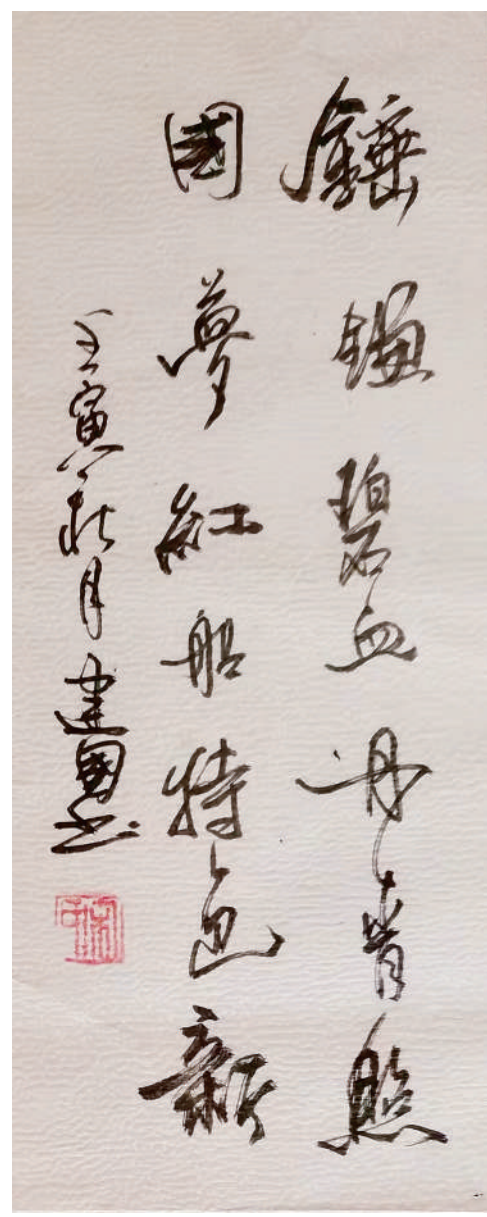 錘鐮碧血丹青照
國夢紅船特色新
壬寅秋月建國书